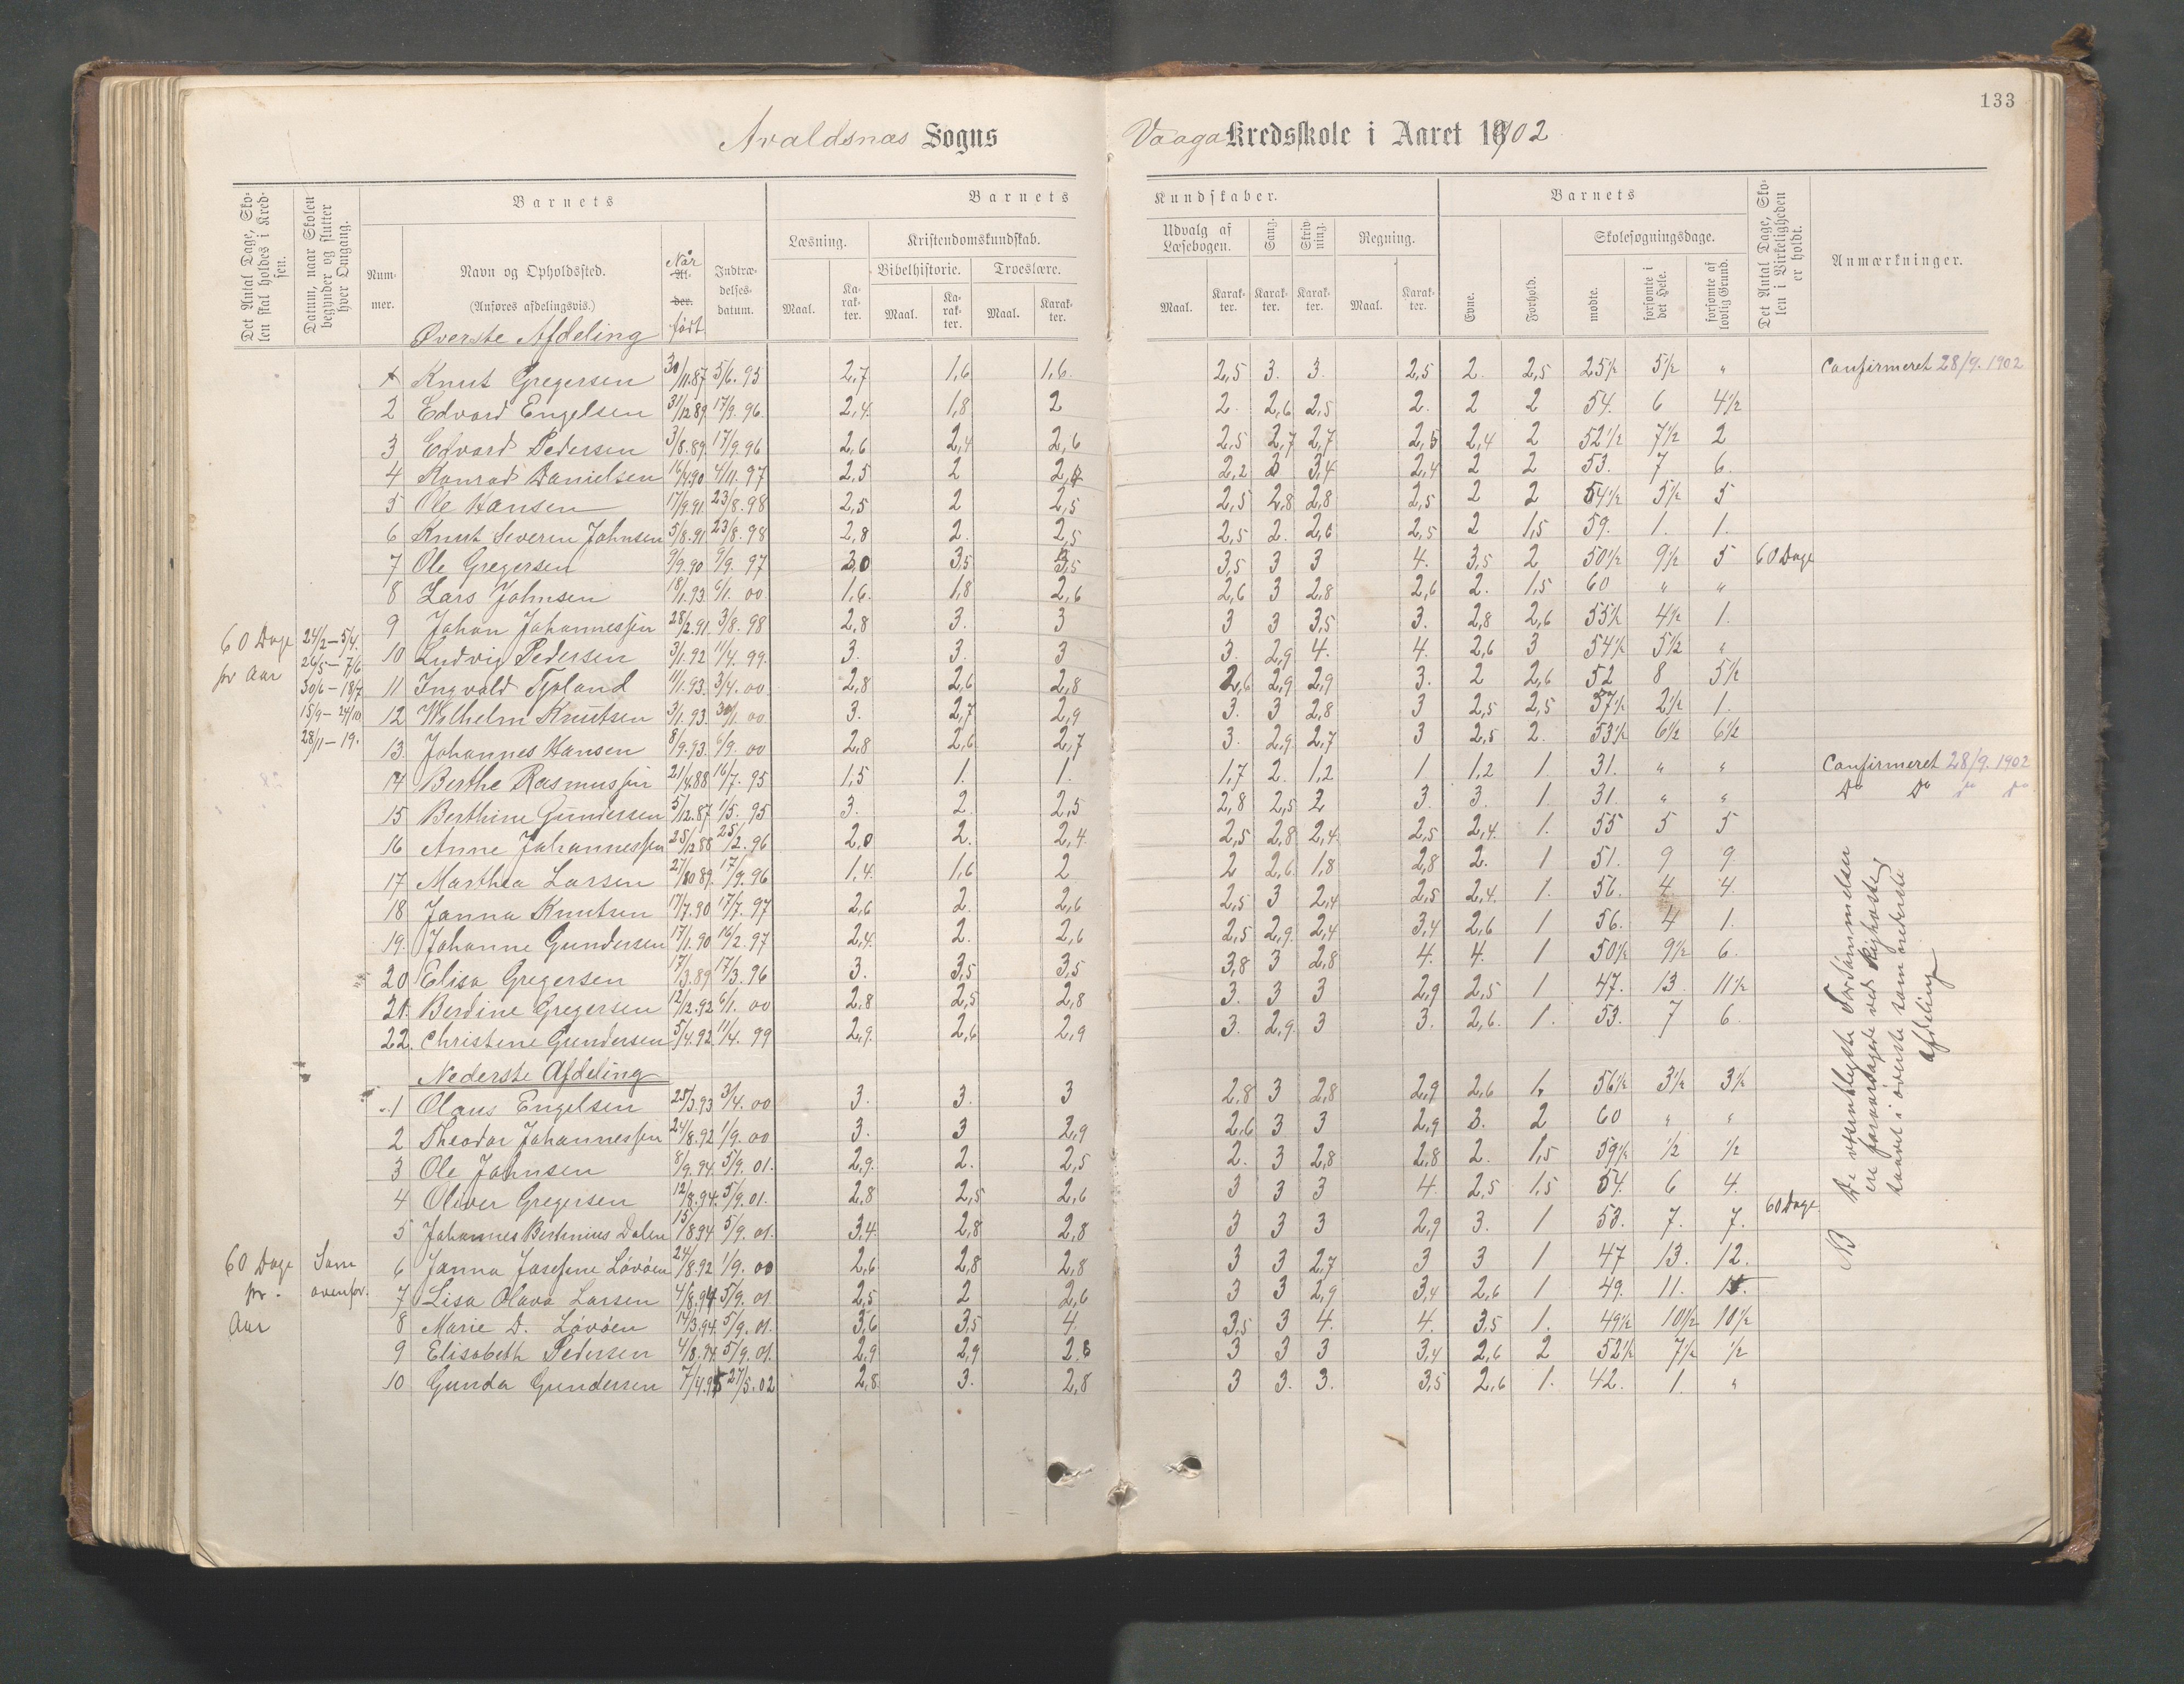 133
Avaldsnæs Sogns Vaaga Kredsskole i Aaret 1902
Det Antal Dage, Skolen skal holdes i Kredsen.
Datum, naar Skolen begynder og slutter hver Omgang.
Nummer.
Barnets
Navn og Opholdssted.
(Anføres afdelingsvis.)
Når født
Indtrædelsesdatum.
Barnets Kundskaber.
Læsning. Kristendomskundskab. Udvalg af Læsebogen. Sang. Skrivning. Regning.
Bibelhistorie. Troeslære.
Maal. Karakter. Maal. Karakter. Maal. Karakter. Maal. Karakter. Karakter. Karakter. Maal. Karakter.
Barnets
Evne. Forhold. Skolesøgningsdage.
mødte. forsømte i det Hele. forsømte af lovlig Grund.
Det Antal Dage, Skolen i Virkeligheden er holdt.
Anmærkninger.
Øverste Afdeling
1 Knut Gregersen 30/11.87 5/6.95 2,7 1,6 1,6 2,5 3. 3. 2,5 2. 2,5 25½ 5½ " Confirmeret 28/9.1902
2 Edvard Engelsen 31/12 89 17/9.96 2,4 1,8 2 2 2,6 2,5 2. 2 2 54. 6 4½
3 Edvard Pedersen 3/8.89 17/9.96 2,6 2,4 2,6 2,5 2,7 2,7 2,5 2,4 2 52½ 7½ 2
4 Konrad Danielsen 16/4.90 4/11.97 2,5 2 2,2 3,4 2,4 2 2 53. 7 6.
5 Ole Hansen 17/9.91 23/8.98 2,5 2 2,5 2,5 2,8 2,8 2,5 2 2 54½ 5½ 5
6 Knut Severin Johnsen 5/8.91 23/8.98 2,8 2. 2,5 2,5 2. 2,6 2,5 2 1,5 59. 1. 1.
7 Ole Gregersen 9/9.90 9/9.97 3,0 3,5 3,5 3,5 3 3 4. 3,5 2 50½ 9½ 5 60 Dage
8 Lars Johnsen 18/1.93 6/1.00 1,6. 1,8 2,6 2,6 3 2,8 2,6 2. 1,5 60 " "
9 Johan Johannessen 28/2.91 3/8.98 2,8 3. 3 3 3 3,5 3. 2,8 2,6 55½ 4½ 1.
10 Ludvig Pedersen 3/1.92 11/4.99. 3. 3. 3 3. 2,9 4. 4. 2,6 3 54½ 5½ "
11 Ingvald Tjoland 11/1.93. 3/4.00 2,8 2,6 2,8 2,6 2,9 2,9 3. 2 2,6 52 8 5½
12 Wilhelm Knutsen 3/1.93. 30/1.00 3. 2,7 2,9 3. 3 2,8 3 2,5 2,5 57½ 2½ 1.
13. Johannes Hansen 8/9.93. 6/9.00 2,8 2,6 2,7 3. 2,9 2,7 3 2,5 2. 53½ 6½ 6½
60 Dage pr Aar
24/2 – 5/4.
26/5 – 7/6
30/6 – 18/7
15/9 – 24/10
28/11 – 19.
14 Berthe Rasmussen 21/4.88 16/7.95 1,5 1. 1. 1,7 2. 1,2 1 1,2 1. 31. " " Confirmeret 28/9.1902
15 Berthine Gundersen 5/12.87 1/5.95 3. 2. 2,5 2,8 2,5 2 3. 3. 1 31. " " Do Do Do Do
16 Anne Johannessen 25/12 88 25/2.96 2,0 2. 2,4 2,5 2,8 2,4 2,5 2,4. 1. 55 5 5
17 Marthea Larsen 27/10 89 17/9.96 1,4 1,6 2 2 2,6 1,8 2,8 2. 1 51. 9 9
18 Janna Knutsen 17/7.90 17/7.97 2,6 2. 2,6 2,5 3 2,4 2,5 2,4. 1. 56. 4 4.
19. Johanne Gundersen 17/1.90 16/2.97 2,4. 2. 2,6 2,5 2,9 2,4 3,4 2,6 1 56. 4 1.
20 Elisa Gregersen 17/3.89 17/3.96 3. 3,5 3,5 3,8 3 2,8 4. 4. 1 50½ 9½ 6.
21. Berdine Gregersen 12/12.92 6/1.00 2,8 2,5 2,8 3. 3 3 2,9 2,5 1 47. 13 11½
22. Christine Gundersen 5/4.92 11/4.99 2,9 2,6 2,9 3. 2,9 3 3. 2,6. 1. 53. 7 6.
Nederste Afdeling
1 Olaus Engelsen 25/3.93 3/4.00 3. 3. 3 2,8 3 2,8 2,9 2,6 1, 56½ 3½ 3½
2 Theodor Johannessen 24/8.92 1/9.00 3. 3 2,9 2,6 3 3 2,9 3. 2 60 " "
3 Ole Johnsen 8/9.94. 5/9.01. 2,9. 2. 2,5 2. 3 2,8 2,8 2. 1,5 59½ ½ ½
4 Oliver Gregersen 12/8.94. 5/9.01. 2,8 2,5 2,6 3 3 3 4 2,5 1,5 54. 6 4.
5 Johannes Bertinius Dalen 15/8.94 5/9.01. 3,4. 2,8 2,8 3 3 3 2,9 3. 1 53. 7. 7. 60 Dage
6 Janna Josefine Lövöen 24/8.92 1/9.00 2,6 2,8 2,8 3 3 2,7 3 3 1 47 13. 12.
7 Lisa Olava Larsen 4/8.94 5/9.01 2,5 2 2,6 3 3 2,9 3,4 2,6 1 49. 11.
8 Marie D. Lövöen 14/3.94. 5/9.01. 3,6 3,5 4. 3,5 3 4. 4. 3,5 1. 49½ 10½ 10½
9 Elisabeth Pedersen 4/8.94. 5/9.01. 2,9 2,9 2,8 3 3 3 3,4 2,6 2 52½ 7½ ½
10 Gunda Gundersen 7/4.95 27/5.02 2,8 3. 2,8 3 3. 3. 3,5 2,6 1. 42. 1. "
60 Dage pr. Aar
Som ovenfor.
NB De væsentligste Forsömmelser
ere foraarsdagede ved Kighoste,
saavel i överste som nederste
afdeling